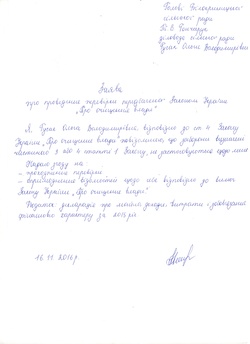 Голові
сільської ради
сільської ради
Гусак Олени Володимирівни
Заява
про проведення перевірки, передбаченої Законом України
"Про очищення влади"
Я, Гусак Олена Володимирівна, відповідно до ст. 4 Закону
України "Про очищення влади" повідомляю, що заборони, визначені
частиною 3 або 4 статті 1 Закону, не застосовуються щодо мене
Надаю згоду на:
- проходження перевірки
- оприлюднення відомостей щодо мене відповідно до вимог
Закону України "Про очищення влади"
Додаток: декларація про майно, доходи, витрати і зобов'язання
фінансового характеру за 2015 рік
16.11.2016р